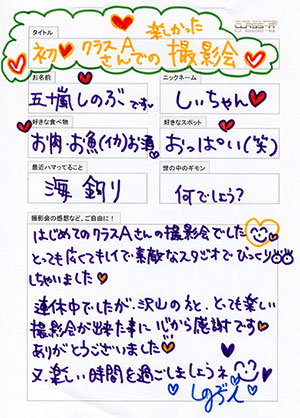 CLASS-A
タイトル
楽しかった
初♥クラスAさんでの撮影会
お名前
五十嵐しのぶです。
ニックネーム
しぃちゃん♥
好きな食べ物
お肉・お魚(イカ)お酒
好きなスポット
おっぱい(笑)
最近ハマってること
海釣り
世の中のギモン
何でしょう?
撮影会の感想など、ご自由に!
はじめてのクラスAさんの撮影会でした
とっても広くてキレイで素敵なスタジオでびっくり
しちゃいました♥
連休中でしたが、沢山の方と、とっても楽しい
撮影会が出来た事に心から感謝です♥
ありがとうございました♥
又、楽しい時間を過ごしましょうネ
しのぶ